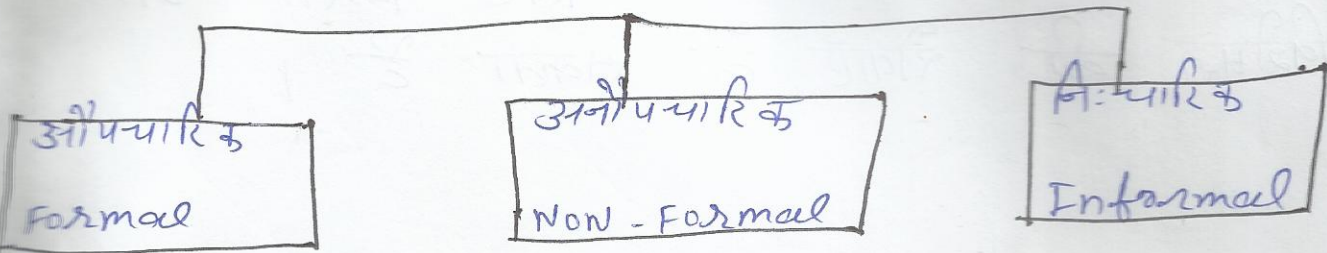 औपचारिक
Formal
अनौपचारिक
NON - Formal
नि:चारिक
Informal